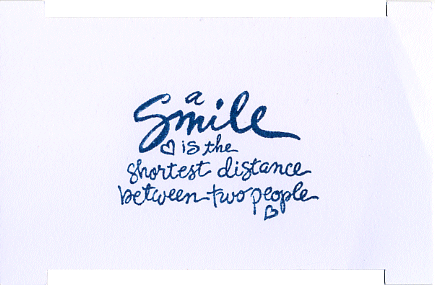 a
Smile
is the
shortest distance
between two people